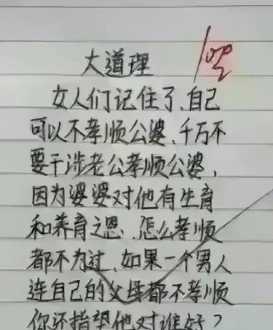 大道理
女人们记住了、自己
可以不孝顺公婆、千万不
要干涉老公孝顺公婆，
因为婆婆对他有生育
和养育之恩、怎么孝顺
都不为过、如果一个男人
连自己的父母都不孝顺
你还指望他对谁好？